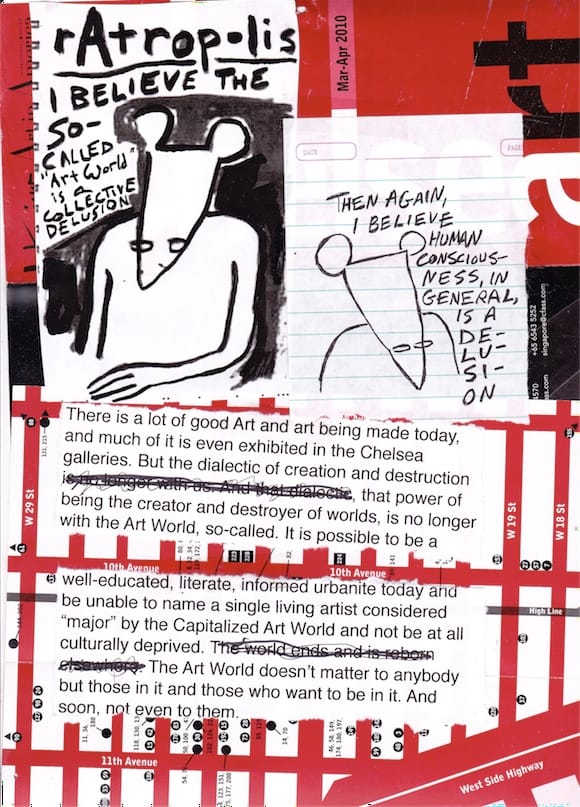 rAtropolis
I BELIEVE THE
SO-
CALLED
"Art World"
is a
COLLECTIVE
DELUSION
Mar-Apr 2010
art
DATE
PAGE
THEN AGAIN,
I BELIEVE
HUMAN
CONSCIOUS-
NESS, IN
GENERAL,
IS A
DE-
LU-
SI-
ON
+65 6543 5252
singapore@class.com
There is a lot of good Art and art being made today,
and much of it is even exhibited in the Chelsea
galleries. But the dialectic of creation and destruction
is no longer with us. And that dialectic, that power of
being the creator and destroyer of worlds, is no longer
with the Art World, so-called. It is possible to be a
W 29 St
W 19 St
W 18 St
10th Avenue
10th Avenue
High Line
well-educated, literate, informed urbanite today and
be unable to name a single living artist considered
“major” by the Capitalized Art World and not be at all
culturally deprived. The world ends and is reborn
elsewhere. The Art World doesn’t matter to anybody
but those in it and those who want to be in it. And
soon, not even to them.
11th Avenue
West Side Highway